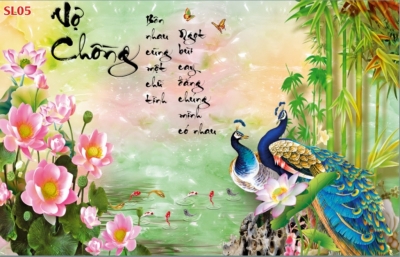 SL05
Vợ
Chồng
Bên
nhau
cùng
một
chữ
tình
Ngọt
bùi
cay
đắng
chung
mình
có nhau